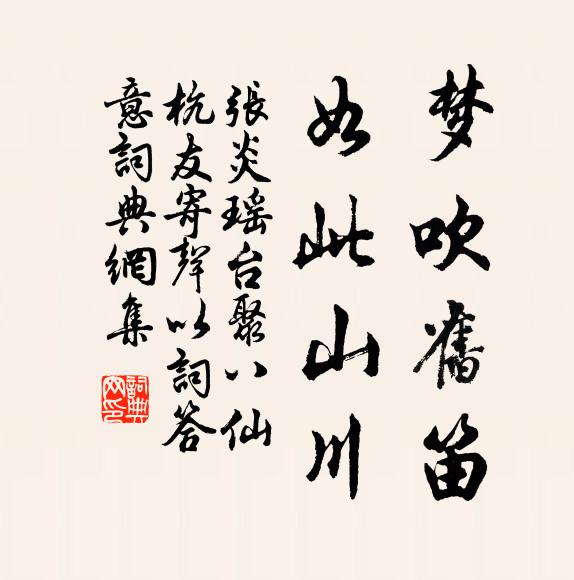 梦吹舊笛
如此山川
張炎瑶台聚八仙
杭友寄聲以詞答
意詞典網集
詞典
网印